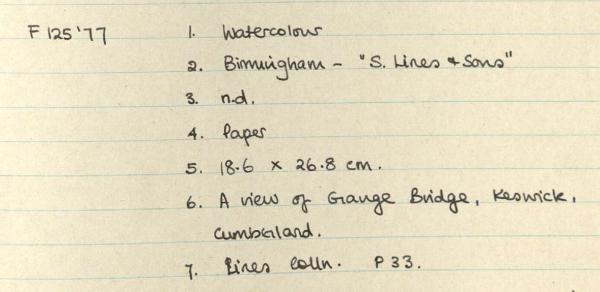 F 125 '77 1. Watercolour
2. Birmingham - "S. Lines & Sons"
3. n.d.
4. Paper
5. 18.6 x 26.8 cm.
6. A view of Grange Bridge, Keswick,
Cumberland.
7. Lines colln. P 33.